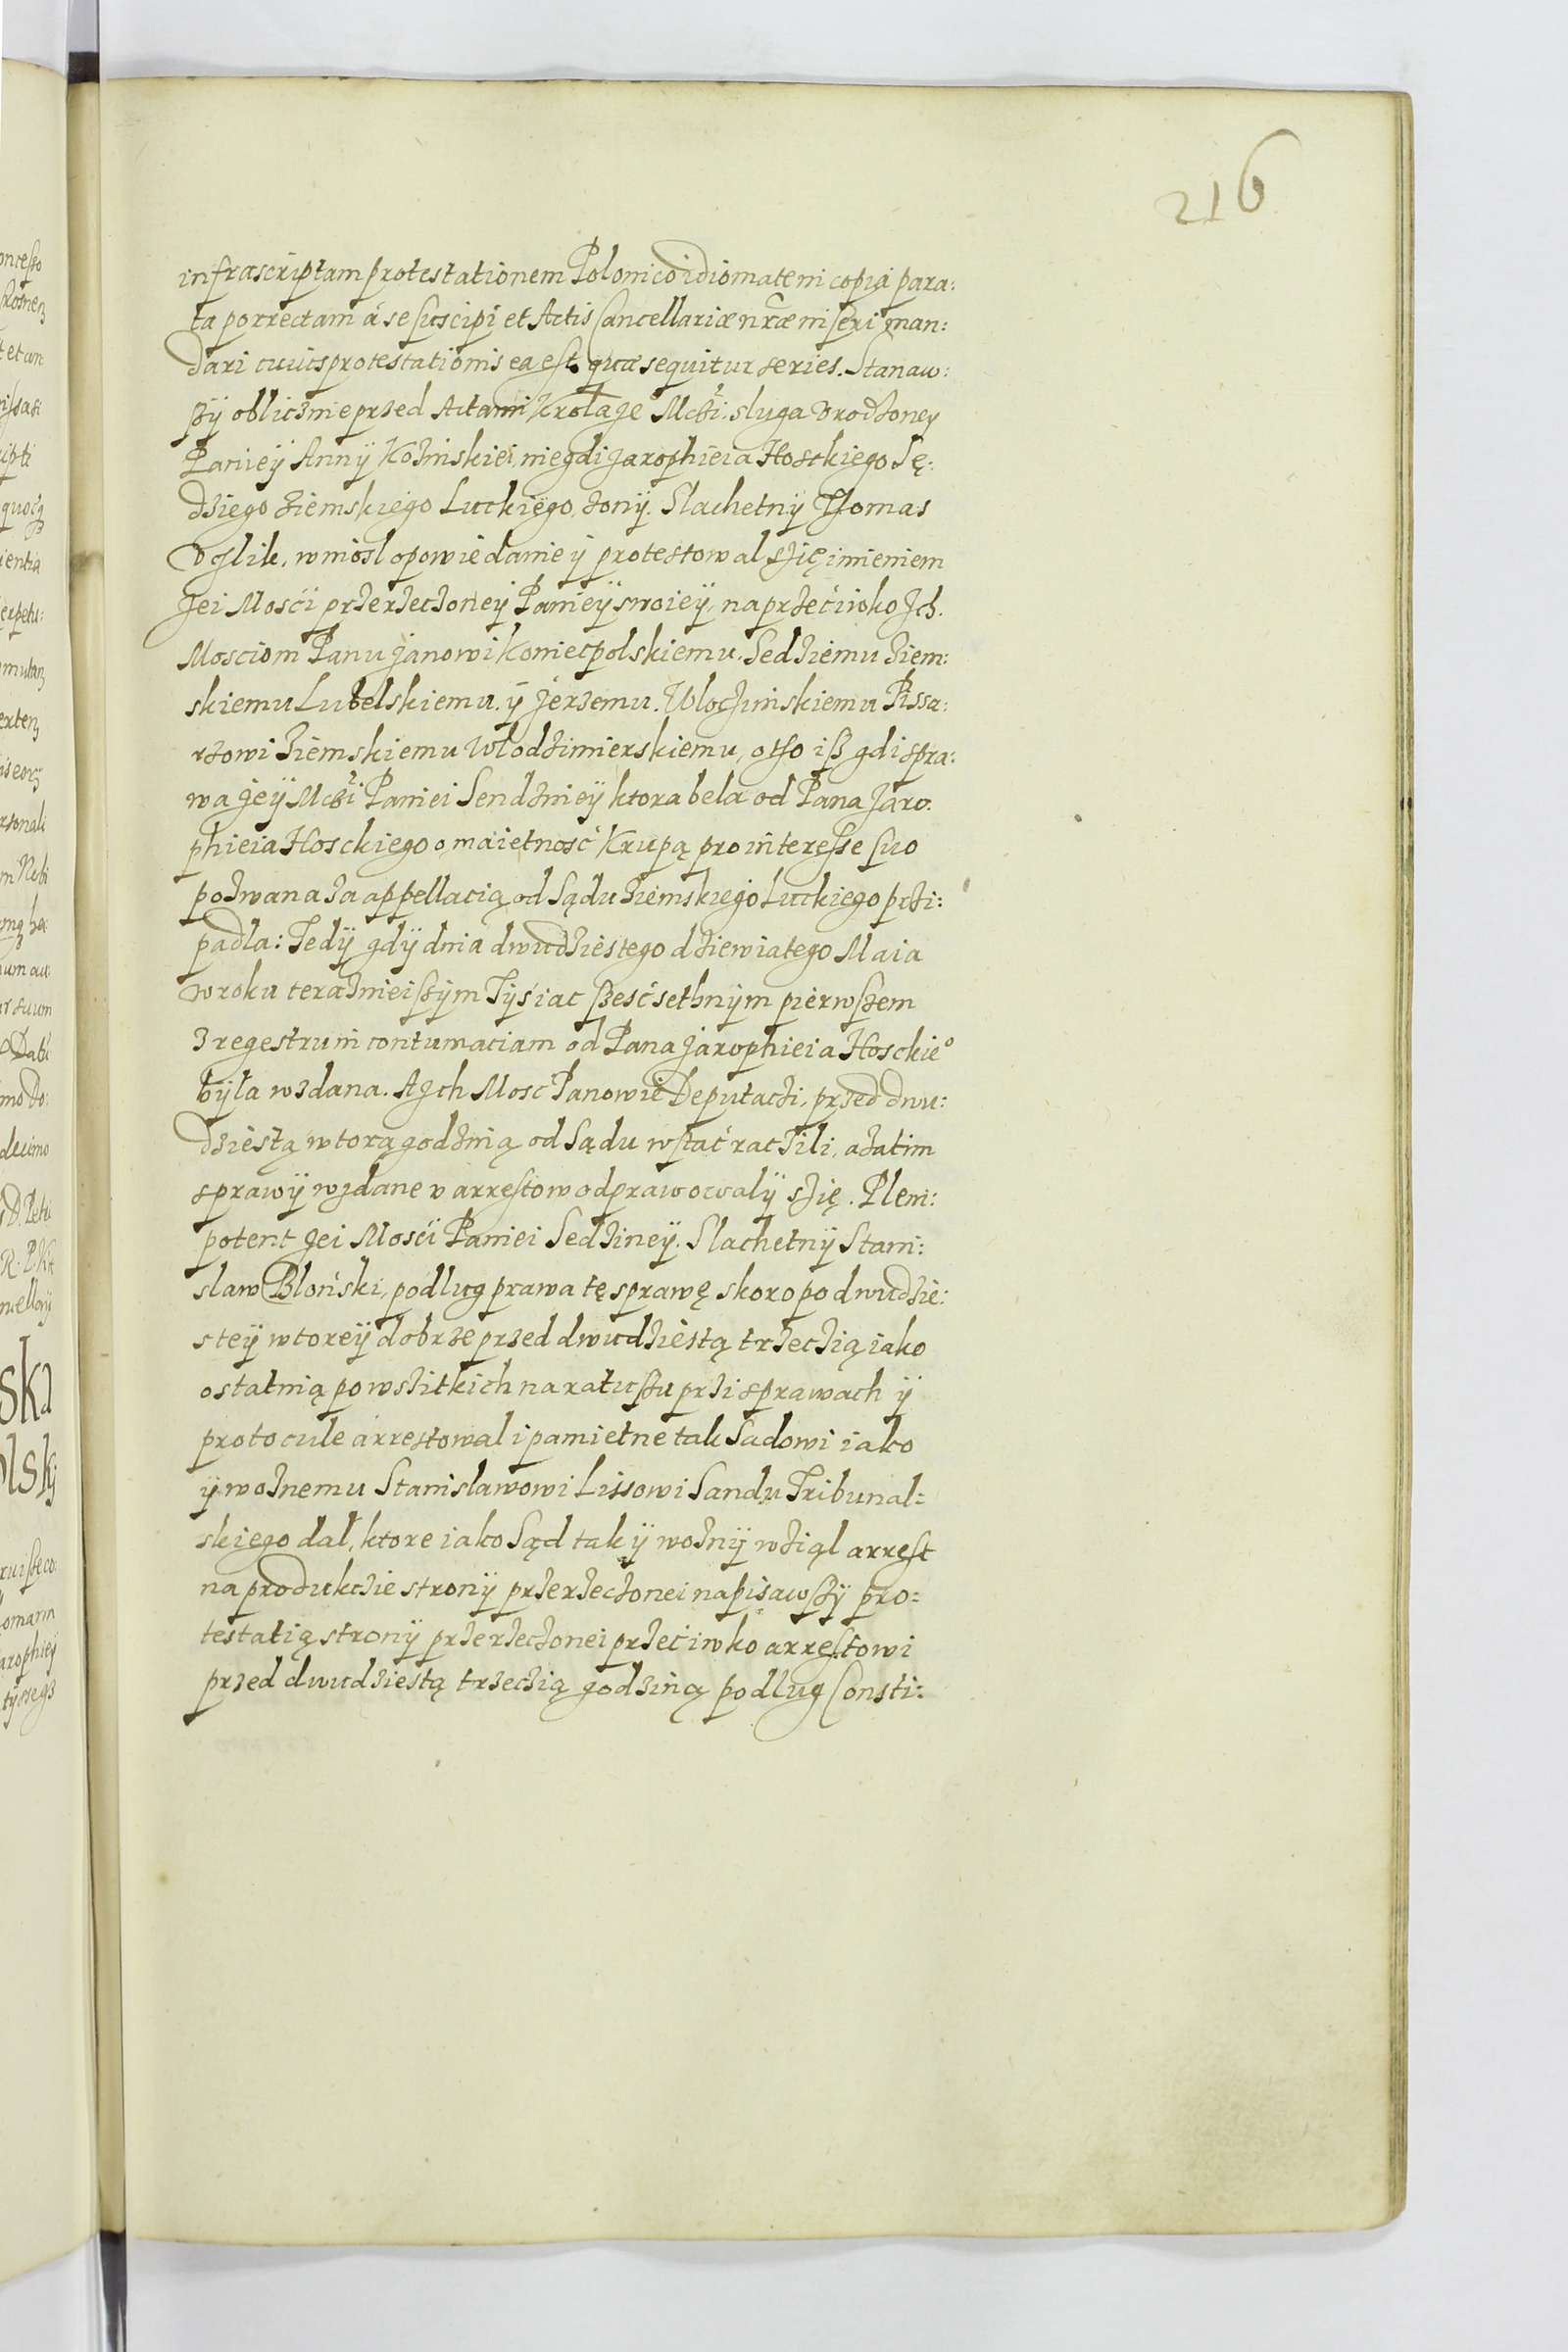 216
infrascriptam protestationem Polonico idiomate in copia para:
ta porrectam á se suscipi et Actis Cancellariæ nr̃æ inseri man:
dari cuius protestationis ea est quæ sequitur series. Stanaw:
szÿ oblicznie przed Actami Krola Je Mczi. sluga Vrodzoney
Paniey Annÿ Kozinskiei, niegdi Jarophieia Hosckiego Sę:
dziego ziemskiego Luckiego, zonÿ. Slachetnÿ Thomas
Voglik, wniosl opowiedanie ÿ protestowal szię imieniem
Jei Mosći przerzeczoneÿ Panieÿ swoieÿ, naprzećiwko Jch.
Mosciom Panu Janowi Koniecpolskiemu. Sedziemu ziem:
skiemu Lubelskiemu. ÿ Jerzemu. Wloczinskiemu Pissa:
rzowi ziemskiemu Wlodzimierskiemu, otho isz gdi spra:
wa Jeÿ Mczi Paniei Sendznieÿ ktora bela od Pana Jaro:
phieia Hosckiego o maietnosć Krupą pro interesse suo
pozwana za appellacią od Sądu ziemskiego Luckiego przi:
padla: Tedÿ gdÿ dnia dwudziestego dziewiatego Maia
w roku teraznieiszÿm Tÿsiac szesćsethnÿm pierwszem
z regestru in contumaciam od Pana Jarophieia Hosckie°
bÿla wzdana. A Jch Mosc Panowie Deputaczi, przed dwu:
dziestą wtorą godzną od Sądu wstać raczili, a zatim
sprawÿ wzdane v arrestow odprawowalÿ szię. Pleni:
potent Jei Mosći Paniei Sedzineÿ. Slachetnÿ Stani:
slaw Bloński, podlug prawa tę sprawę skoro po dwudzie:
steÿ wtoreÿ dobrze przed dwudziestą trzeczią iako
ostatnią po wszitkich na ratuszu przi sprawach ÿ
protocule arrestowal i pamietne tak Sadowi iako
ÿ woznemu Stanislawowi Lissowi Sandu Tribunal:
skiego dal, ktore iako Sąd tak ÿ woznÿ wziąl arrest
na produkczie stronÿ przerzeczonei napisawszÿ pro:
testatią stronÿ przerzeczonei przećiwko arrestowi
przed dwudziestą trzeczią godziną podlug Consti: